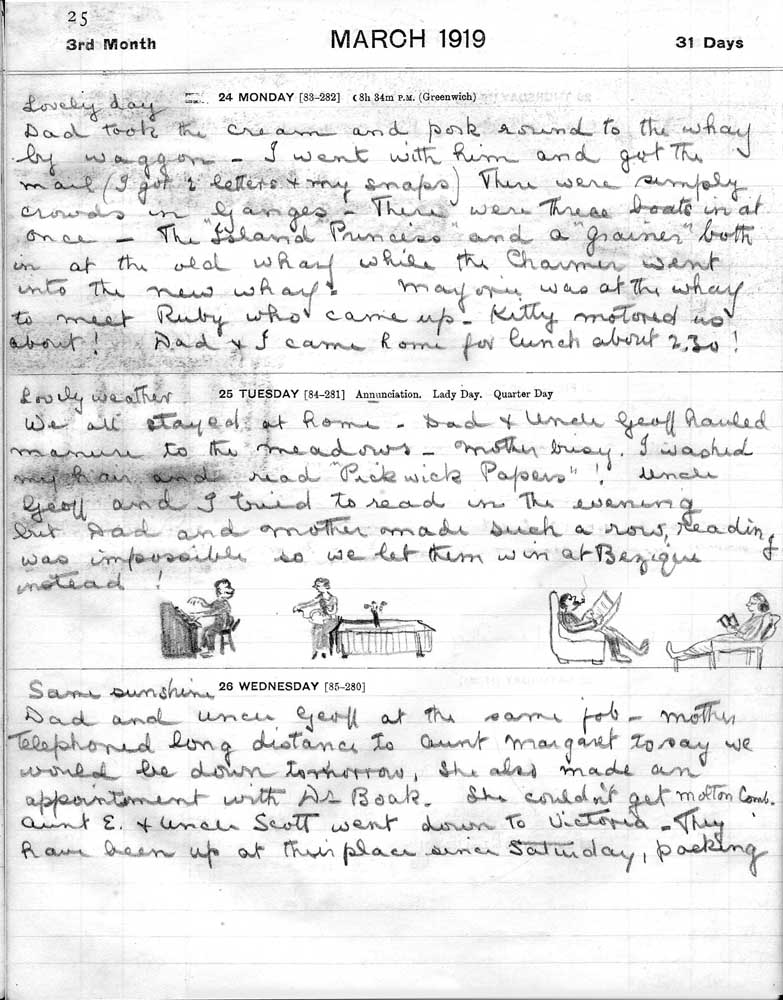 25
3rd Month MARCH 1919 31 Days
Lovely day 24 MONDAY [83-282] ☾8h 34m P.M. (Greenwich)
Dad took the cream and pork round to the wharf
by waggon - I went with him and got the
mail (I got 2 letters & my snaps) There were simply
crowds in Ganges - There were three boats in at
once - The "Island Princess" and a "Grainer" both
in at the old wharf while the Charmer went
into the new wharf. Marjorie was at the wharf
to meet Ruby who came up - Kitty motored us
about! Dad & I came home for lunch about 2.30!
Lovely weather 25 TUESDAY [84-281] Annunciation. Lady Day. Quarter Day
We all stayed at home - Dad & Uncle Geoff hauled
manure to the meadows - Mother busy. I washed
my hair and read "Pickwick Papers"! Uncle
Geoff and I tried to read in the evening
but Dad and Mother made such a row, reading
was impossible so we let them win at Bezique
instead!
Same sunshine 26 WEDNESDAY [85-280]
Dad and Uncle Geoff at the same job - Mother
telephoned long distance to Aunt Margaret to say we
would be down tomorrow, she also made an
appointment with Dr Boak. She couldn't get Molton Comb.
Aunt E. & Uncle Scott went down to Victoria - They
have been up at their place since Saturday, packing